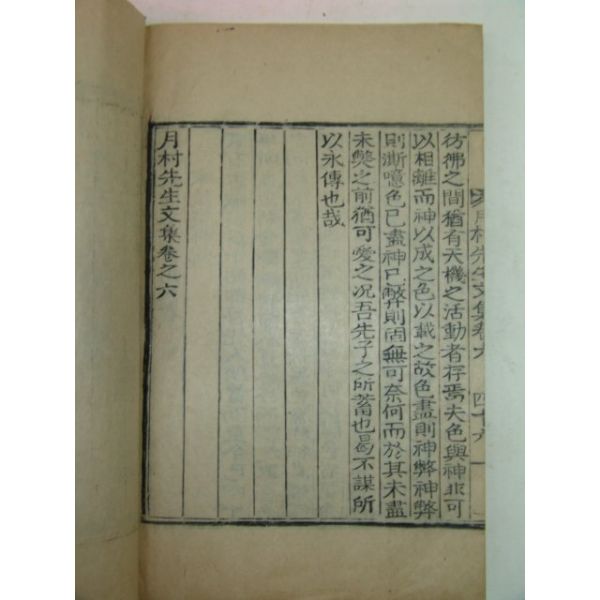 月村先生文集卷六 四十六
彷彿之間猶有天機之活動者存焉夫色與神非可
以相離而神以成之色以載之故色盡則神弊神弊
則澌噫色已盡神已弊則固無可奈何而於其未盡
未獘之前猶可愛之况吾先子之所蓄也曷不謀所
以永傳也哉
月村先生文集卷之六